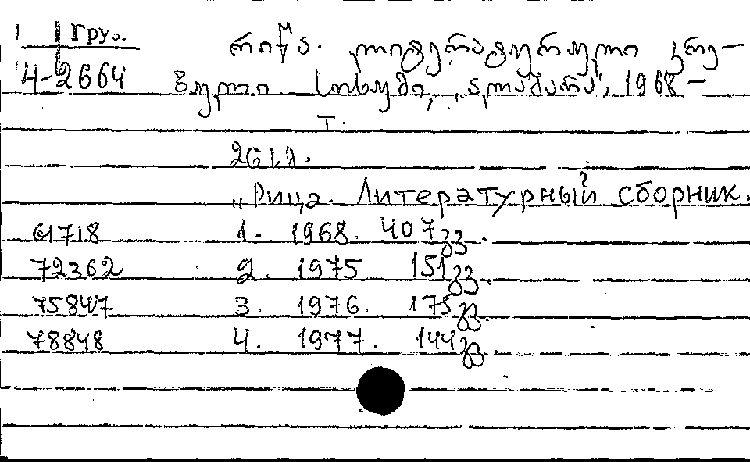 1 Груз.
4-2664
რიწა. ლიტერატურული კრე-
ბული. სოხუმი, „ალაშარა", 1968 –
т.
„Рица. Литературный сборник.
61718 1. 1968. 407 გვ.
72362 2. 1975 151 გვ.
75847 3. 1976. 175 გვ.
78848 4. 1977. 144 გვ.